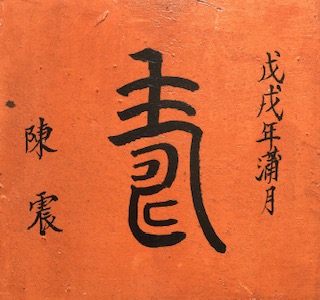 戊戌年滿月
壽
陳震